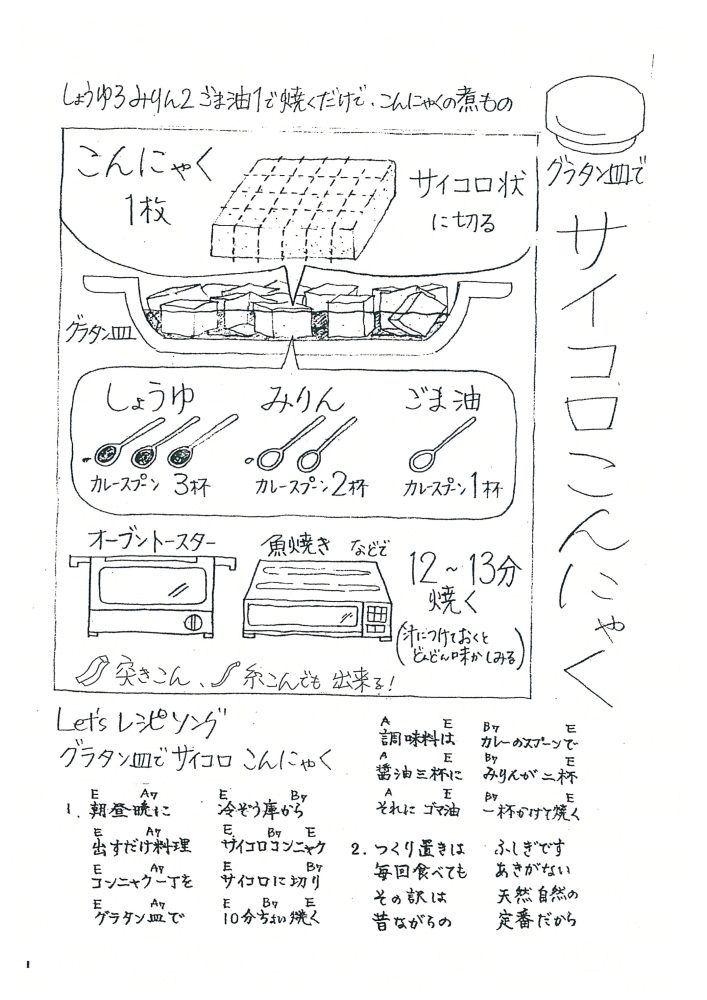 しょうゆ3みりん2ごま油1で焼くだけで、こんにゃくの煮もの
グラタン皿で
サイコロこんにゃく
こんにゃく
1枚
サイコロ状
に切る
グラタン皿
しょうゆ
カレースプーン 3杯
みりん
カレースプーン2杯
ごま油
カレースプーン1杯
オーブントースター
魚焼き などで
12~13分
焼く
(汁につけておくと
どんどん味がしみる)
突きこん、糸こんでも 出来る!
Let's レシピソング
グラタン皿で サイコロ こんにゃく
E A7 E B7
1. 朝昼晩に 冷ぞう庫から
E A7 E B7 E
出すだけ料理 サイコロコンニャク
E A7 E B7
コンニャク一丁を サイコロに切り
E A7 E B7 E
グラタン皿で 10分ちょい焼く
A E B7 E
調味料は カレーのスプーンで
A E B7 E
醤油三杯に みりんが二杯
A E B7 E
それに ゴマ油 一杯かけて焼く
2. つくり置きは ふしぎです
毎回食べても あきがない
その訳は 天然自然の
昔ながらの 定番だから